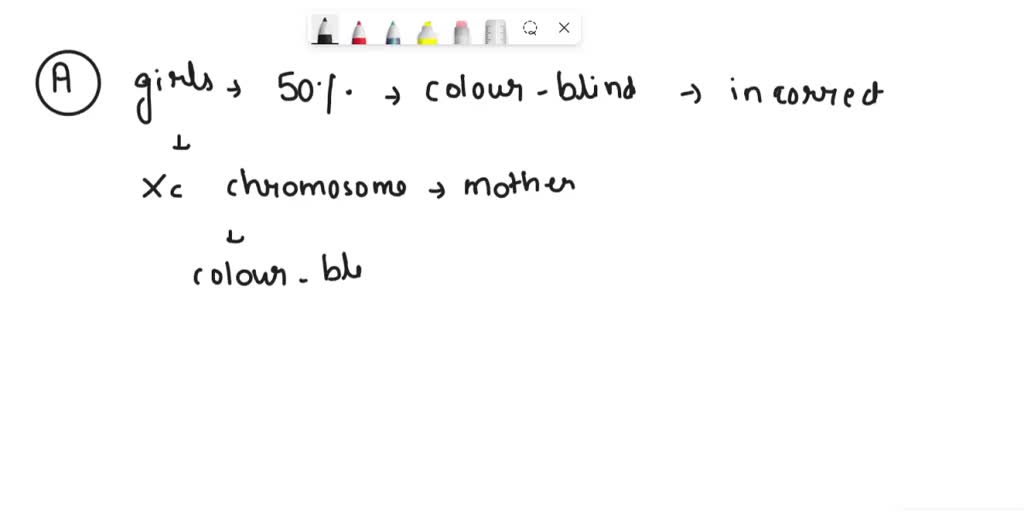 A girls → 50% → colour-blind → incorrect
↓
Xc chromosome → mother
↓
colour-bl